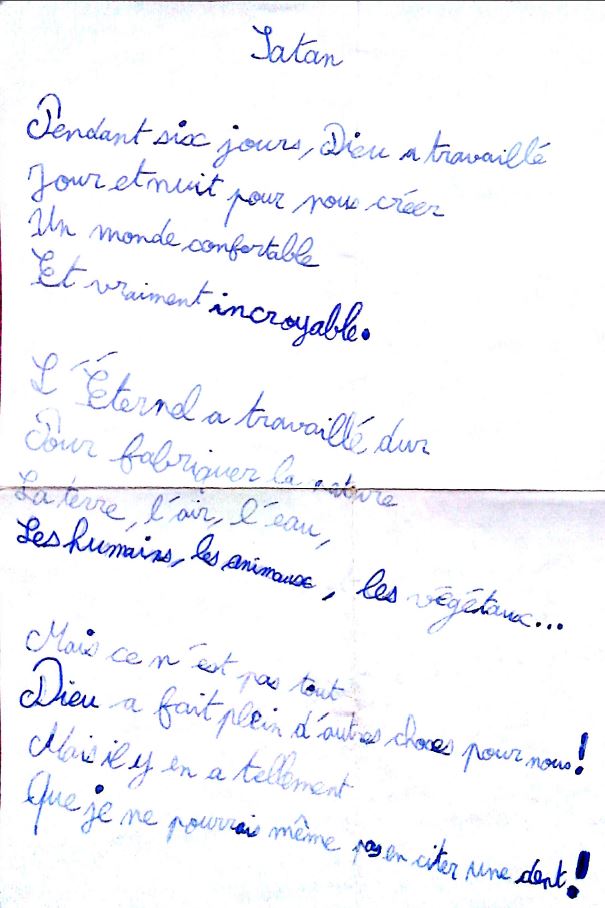 Satan
Pendant six jours, Dieu a travaillé
Jour et nuit pour nous créer
Un monde confortable
Et vraiment incroyable.
L'Éternel a travaillé dur
Pour fabriquer la nature
La terre, l'air, l'eau,
Les humains, les animaux, les végétaux...
Mais ce n'est pas tout
Dieu a fait plein d'autres choses pour nous!
Mais il y en a tellement
Que je ne pourrais même pas en citer une dent!